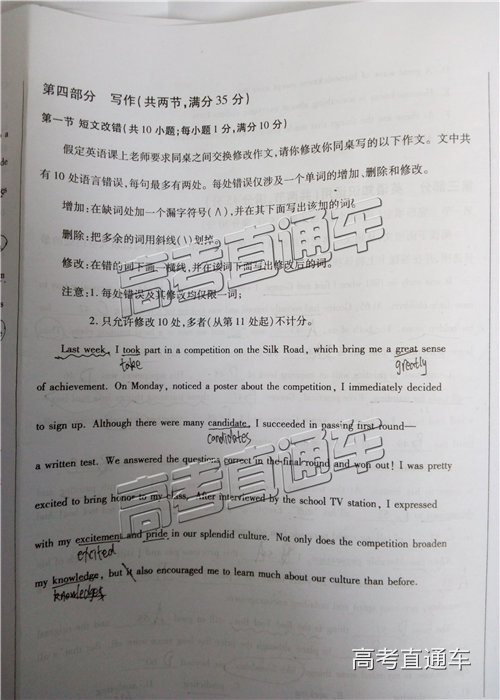 第四部分 写作(共两节,满分35分)
第一节 短文改错(共10小题;每小题1分,满分10分)
假定英语课上老师要求同桌之间交换修改作文,请你修改你同桌写的以下作文。文中共
有10处语言错误,每句最多有两处。每处错误仅涉及一个单词的增加、删除和修改。
增加:在缺词处加一个漏字符号(∧),并在其下面写出该加的词。
删除:把多余的词用斜线(\)划掉。
修改:在错的词下画一横线,并在该词下面写出修改后的词。
注意:1. 每处错误及其修改均仅限一词;
2. 只允许修改10处,多者(从第11处起)不计分。
Last week, I took part in a competition on the Silk Road, which bring me a great sense
take greatly
of achievement. On Monday, noticed a poster about the competition, I immediately decided
to sign up. Although there were many candidate, I succeeded in passing first round—
candidates
a written test. We answered the questions correct in the final round and won out! I was pretty
excited to bring honor to my class. After interviewed by the school TV station, I expressed
with my excitement and pride in our splendid culture. Not only does the competition broaden
excited
my knowledge, but it also encouraged me to learn much about our culture than before.
knowledges
高考直通车
高考直通车
高考直通车